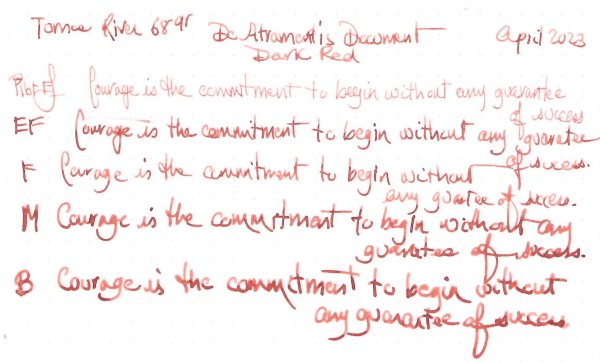 Tomoe River 68gr De Atramentis Document April 2023
Dark Red
Pilot EF Courage is the commitment to begin without any guarantee
of success
EF Courage is the commitment to begin without any guaratee
of success.
F Courage is the commitment to begin without
any guaratee of success.
M Courage is the commitment to begin without any
guaratee of success.
B Courage is the commitment to begin without
any guarantee of success